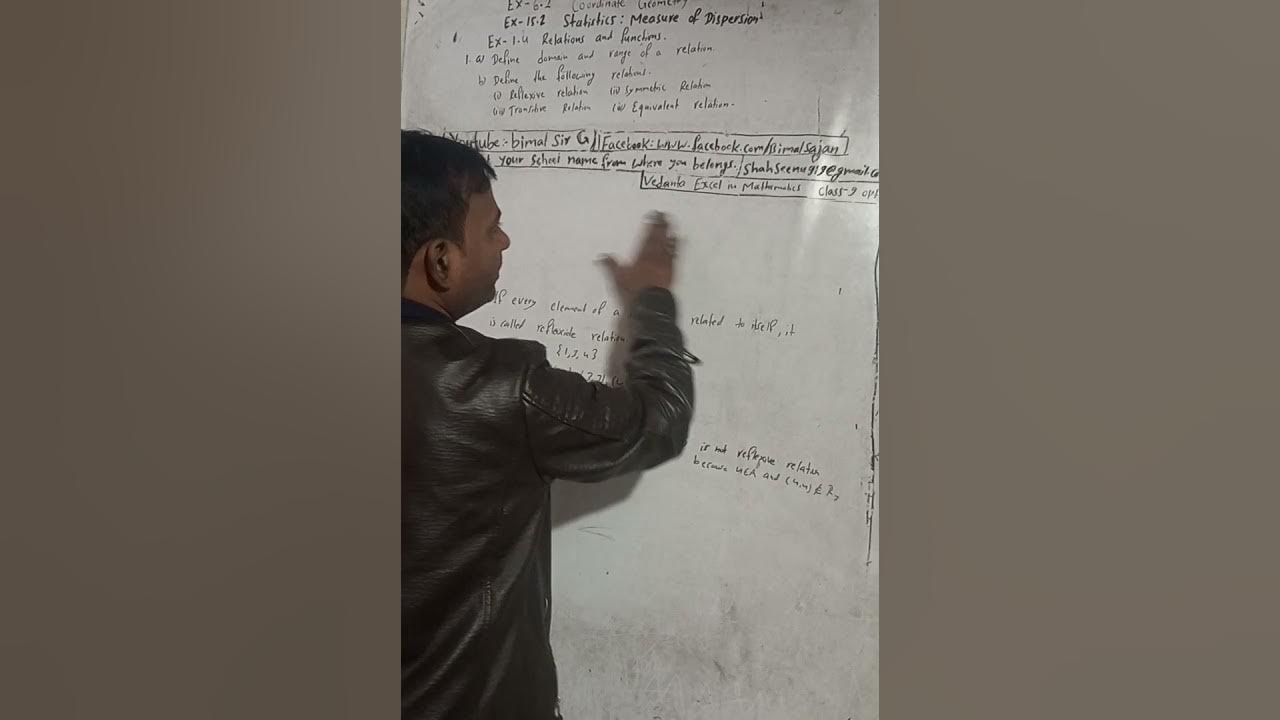 Ex-6.2 Coordinate Geometry
Ex-15.2 Statistics: Measure of Dispersion
Ex-1.4 Relations and functions.
1. a) Define domain and range of a relation.
b) Define the following relations.
(i) Reflexive relation (ii) Symmetric Relation
(iii) Transitive Relation (iv) Equivalent relation.
Youtube:- bimal Sir G Facebook: www.facebook.com/Bimalsajan
your School name from where you belongs. shahseenu919@gmail.co
Vedanta Excel in Mathematics Class-9 opt
If every element of a related to itself, it
is called reflexive relation
{1,3,4}
is not reflexive relation
because 4∈A and (4,4) ∉ R2